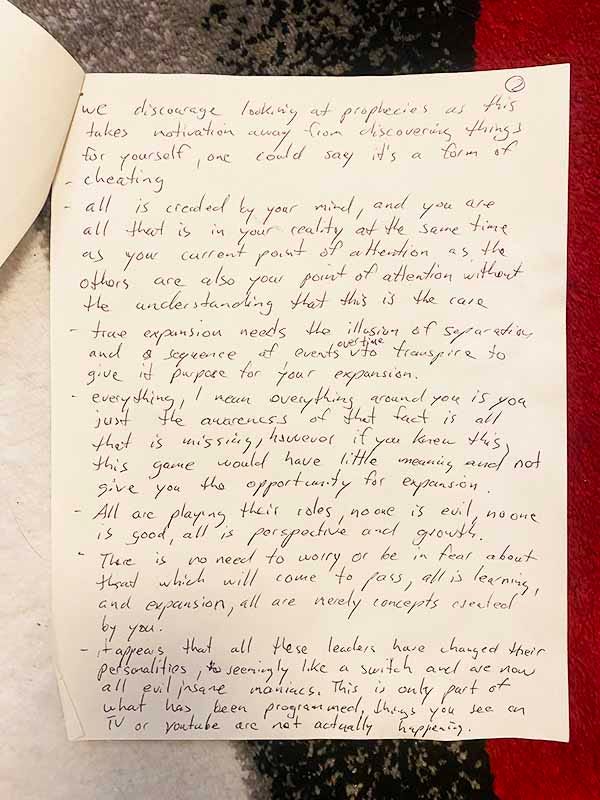 2
we discourage looking at prophecies as this
takes motivation away from discovering things
for yourself, one could say it's a form of
- cheating
- all is created by your mind, and you are
all that is in your reality at the same time
as your current point of attention as the
others are also your point of attention without
the understanding that this is the case
- true expansion needs the illusion of separation
and a sequence of events overtime to transpire to
give it purpose for your expansion.
- everything, I mean everything around you is you
just the awareness of that fact is all
that is missing, however if you knew this,
this game would have little meaning and not
give you the opportunity for expansion.
- All are playing their roles, no one is evil, no one
is good, all is perspective and growth.
- There is no need to worry or be in fear about
that which will come to pass, all is learning,
and expansion, all are merely concepts created
by you.
- it appears that all these leaders have changed their
personalities, seemingly like a switch and are now
all evil insane maniacs. This is only part of
what has been programmed, things you see on
TV or youtube are not actually happening.